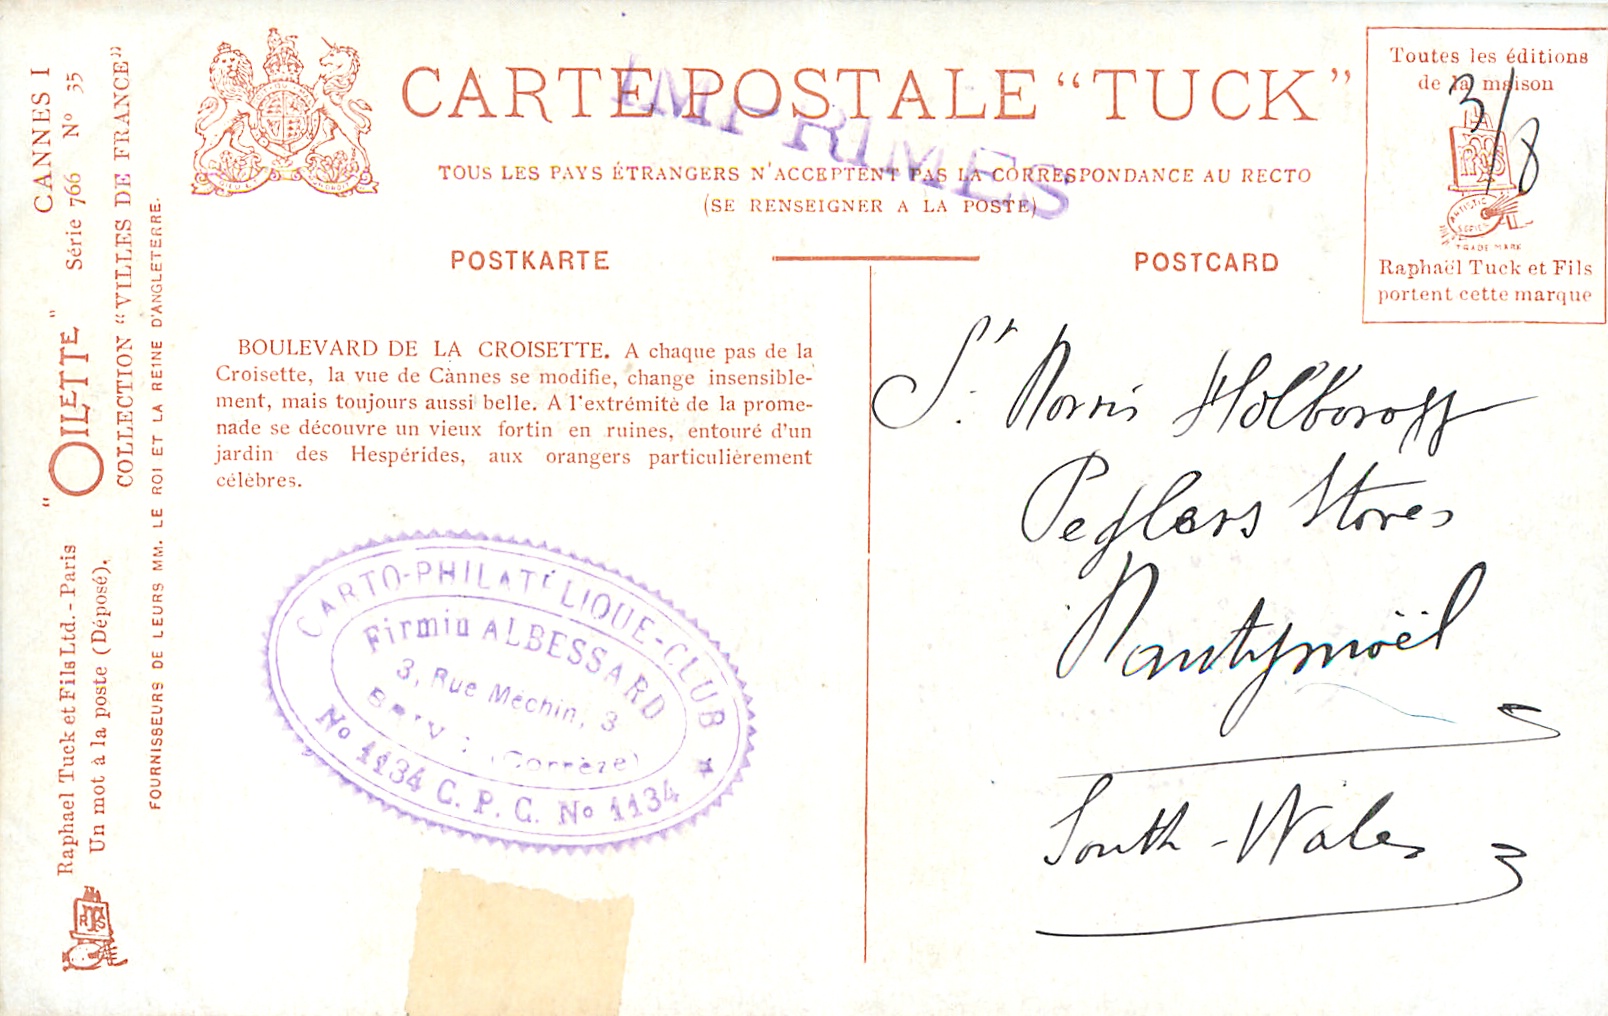 CARTE POSTALE “TUCK”
IMPRIMÉS
TOUS LES PAYS ÉTRANGERS N'ACCEPTENT PAS LA CORRESPONDANCE AU RECTO
(SE RENSEIGNER A LA POSTE)
POSTKARTE
POSTCARD
Toutes les éditions
de la maison
3/8
ARTISTIC
SERIES
TRADE MARK
Raphaël Tuck et Fils
portent cette marque
CANNES I
Série 766 N° 35
“OILETTE”
COLLECTION “VILLES DE FRANCE”
FOURNISSEURS DE LEURS MM. LE ROI ET LA REINE D'ANGLETERRE.
Raphael Tuck et Fils Ltd. - Paris
Un mot à la poste (Déposé).
BOULEVARD DE LA CROISETTE. A chaque pas de la
Croisette, la vue de Cànnes se modifie, change insensible-
ment, mais toujours aussi belle. A l'extrémité de la prome-
nade se découvre un vieux fortin en ruines, entouré d'un
jardin des Hespérides, aux orangers particulièrement
célèbres.
CARTO-PHILATÉLIQUE-CLUB
Firmin ALBESSARD
3, Rue Méchin, 3
(Corrèze)
N° 1134 C. P. C. N° 1134
Morris
Peglers Stores
Nantymoël
South-Wales